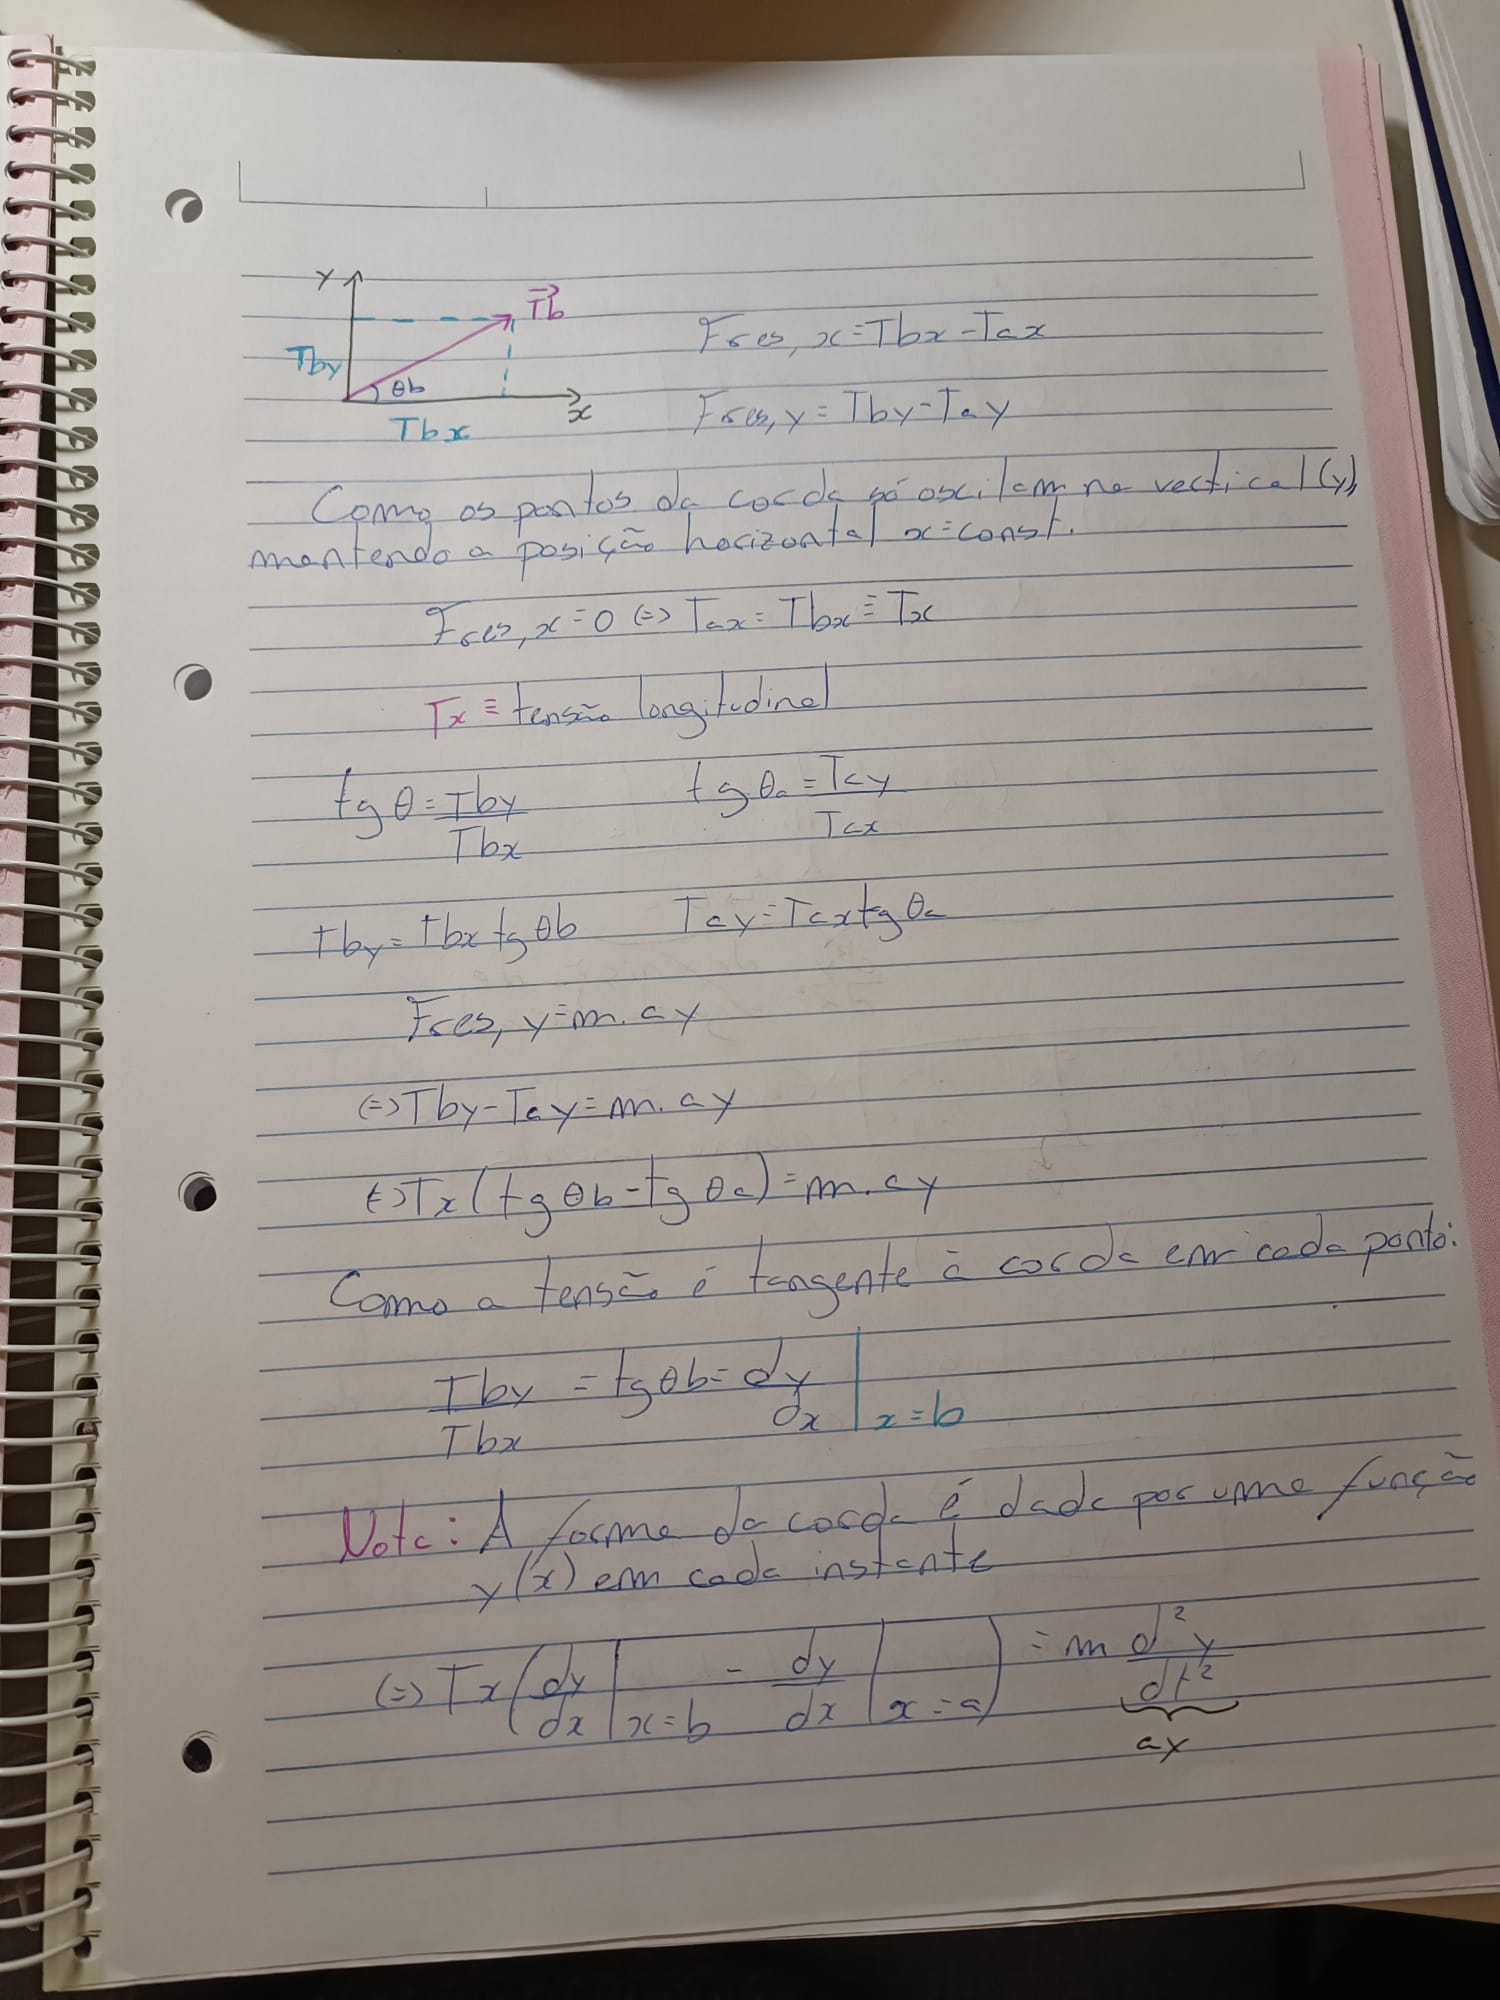 y
T⃗b
Tby
θb
x
Tbx
Fres, x = Tbx - Tax
Fres, y = Tby - Tay
Como os pontos da corda só oscilam na vertical (y),
mantendo a posição horizontal x = const.
Fres, x = 0 (=) Tax = Tbx ≡ Tx
Tx ≡ tensão longitudinal
tg θ = Tby/Tbx tg θa = Tay/Tax
Tby = Tbx tg θb Tay = Tax tg θa
Fres, y = m. ay
(=) Tby - Tay = m. ay
(=) Tx (tg θb - tg θa) = m. ay
Como a tensão é tangente à corda em cada ponto:
Tby/Tbx = tg θb = dy/dx | x = b
Nota: A forma da corda é dada por uma função
y(x) em cada instante
(=) Tx (dy/dx | x = b - dy/dx | x = a) = m d²y/dt²
ay